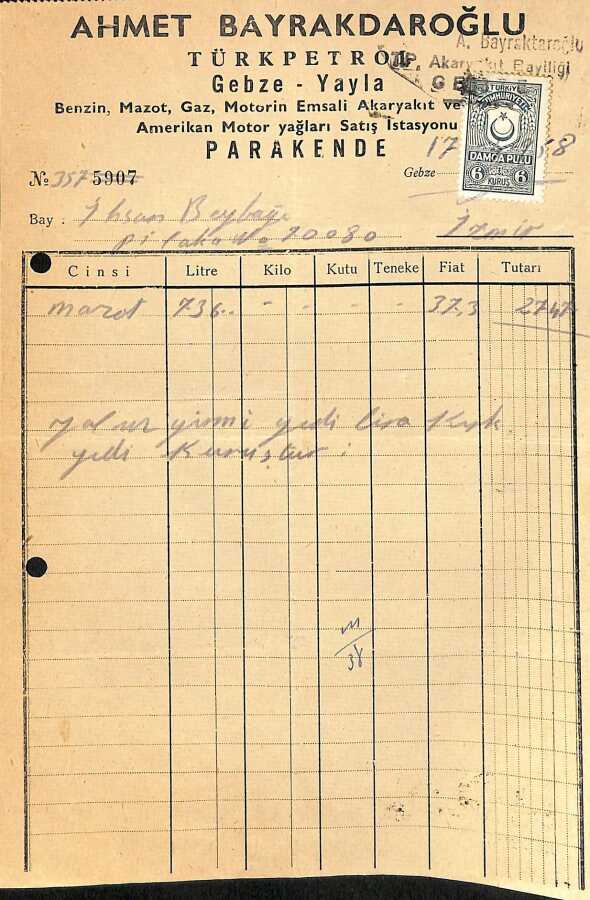 AHMET BAYRAKDAROĞLU
TÜRKPETROL
A. Bayraktaroğlu
T.P. Akaryakıt Bayiliği
GEBZE
Gebze - Yayla
Benzin, Mazot, Gaz, Motorin Emsali Akaryakıt ve
Amerikan Motor yağları Satış İstasyonu
PARAKENDE
TÜRKİYE
CUMHURİYETİ
DAMGA PULU
6 KURUŞ 6
No 357 5907
Gebze 17 58
Bay : İhsan Beybağı
Plaka No 20080 İzmir
Cinsi Litre Kilo Kutu Teneke Fiat Tutarı
mazot 736.. - - - - 37,3 2747
Yalnız yirmi yedi lira kırk
yedi Kuruştur.
38